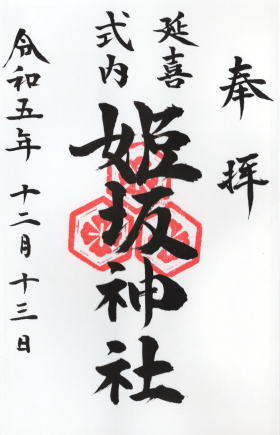 奉拝
延喜
式内
姫坂神社
令和五年 十二月 十三日